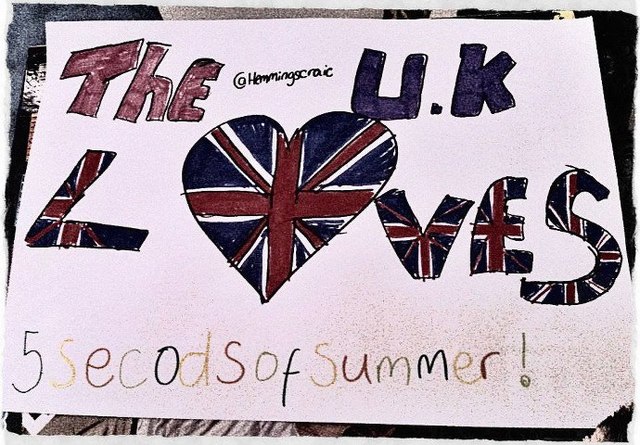 The @Hemmingscraic U.K
L❤VES
5 secodsofsummer!